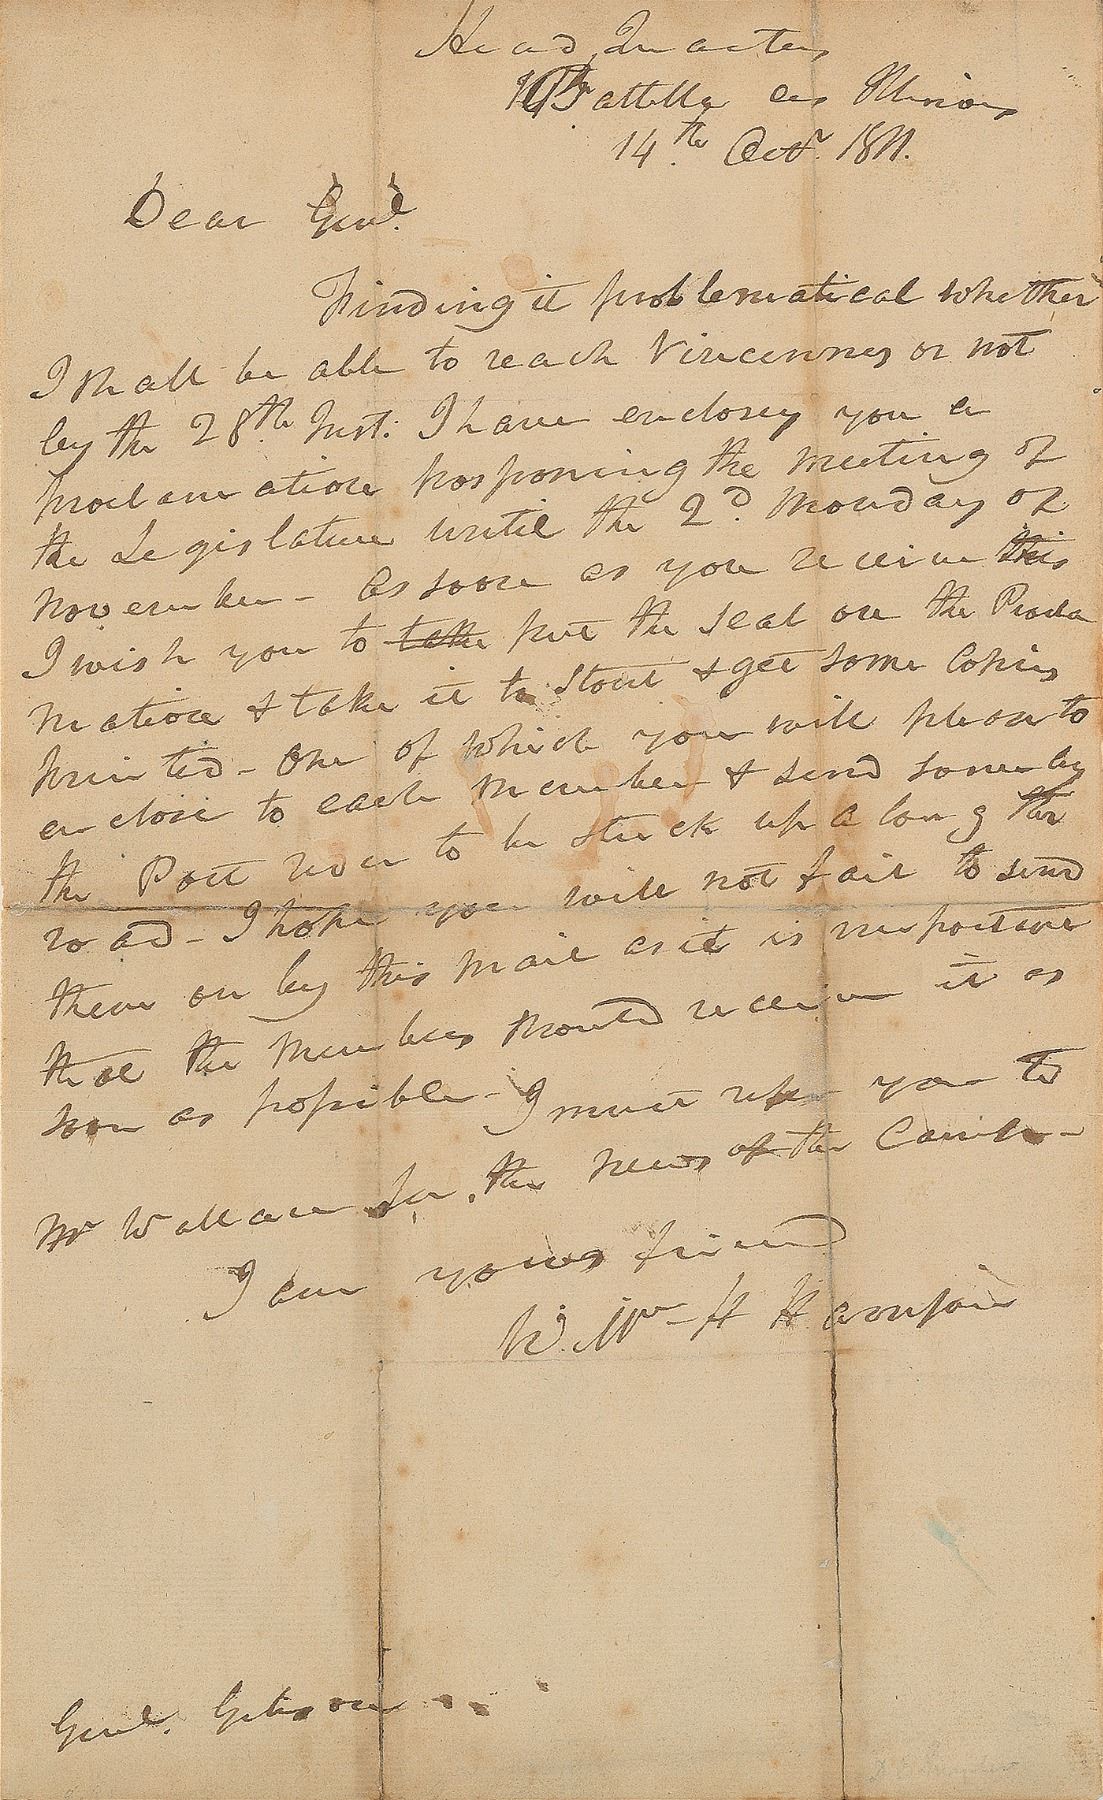 Head Quarters
Battelle des Illinois
14.th Octr. 1811.
Dear Genl.
Finding it problematical whether
I shall be able to reach Vincennes or not
by the 28th. Inst: I have enclosey you a
proclamation posponing the meeting of
the Legislature until the 2d. Monday of
November - As soon as you receive this
I wish you to take put the seal on the Procla
mation & take it to Stout & get some Copies
printed - One of which you will please to
enclose to each member & send some by
the Post rider to be stuck up along the
road - I hope you will not fail to send
them on by this mail as it is important
that the members should receive it as
soon as possible - I must refer you to
Mr Wallace for the news of the Camp -
I am yours friend
Willm H Harrison
Genl. Gibson